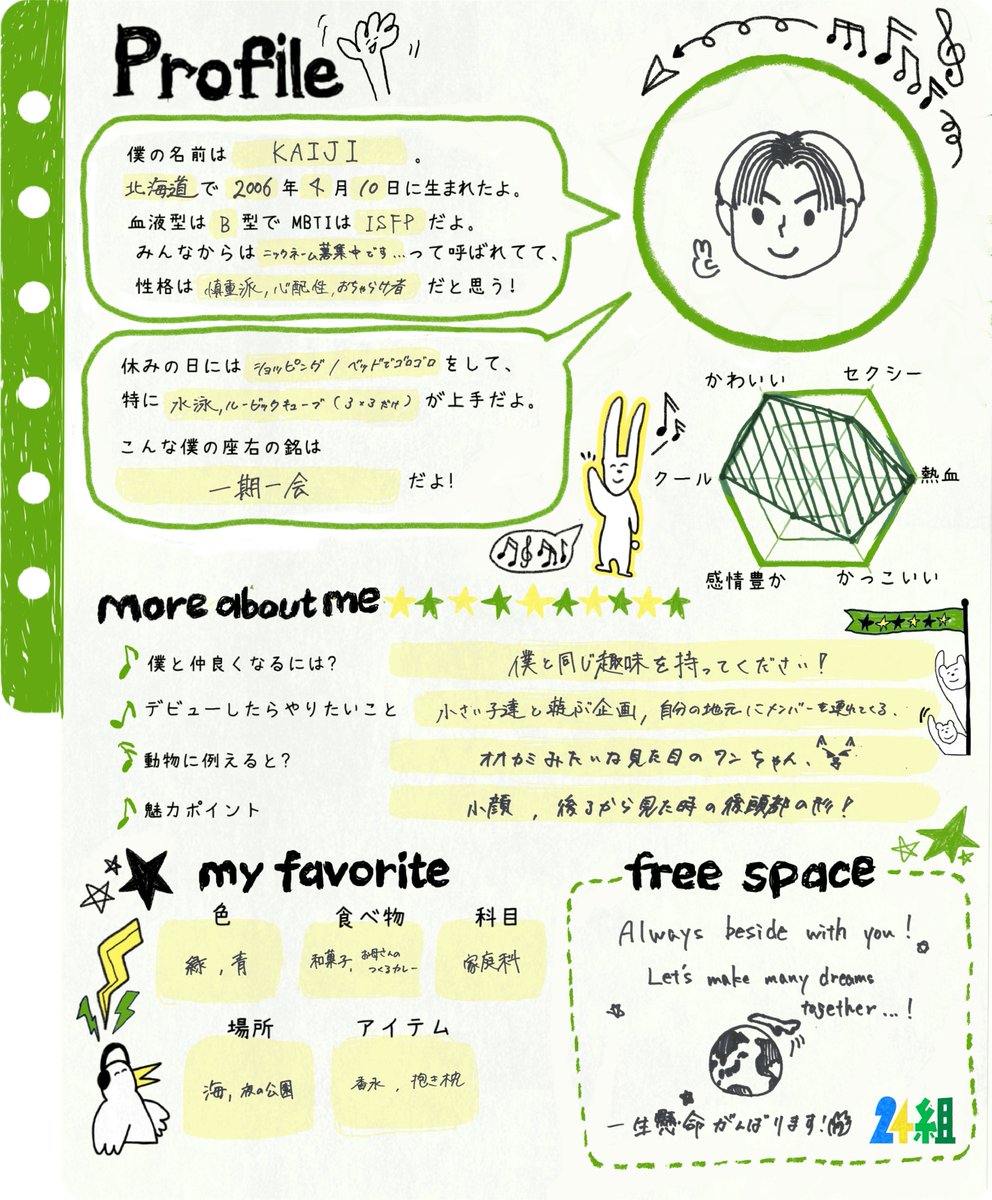 Profile
僕の名前は KAIJI 。
北海道で 2006 年 4 月 10 日に生まれたよ。
血液型は B 型で MBTIは ISFP だよ。
みんなからは ニックネーム募集中です… って呼ばれてて、
性格は 慎重派, 心配性, おちゃらけ者 だと思う!
休みの日には ショッピング / ベッドでゴロゴロ をして、
特に 水泳, ルービックキューブ (3×3だけ) が上手だよ。
こんな僕の座右の銘は
一期一会 だよ!
かわいい
セクシー
クール
熱血
感情豊か
かっこいい
more about me
僕と仲良くなるには? 僕と同じ趣味を持ってください!
デビューしたらやりたいこと 小さい子達と遊ぶ企画, 自分の地元にメンバーを連れてくる.
動物に例えると? オオカミみたいな見た目のワンちゃん、
魅力ポイント 小顔, 後ろから見た時の後頭部の形!
my favorite
色 食べ物 科目
緑, 青
和菓子, お母さんの
つくるカレー
家庭科
場所 アイテム
海, 夜の公園
香水, 抱き枕
free space
Always beside with you!
Let's make many dreams
together...!
一生懸命がんばります!
24組